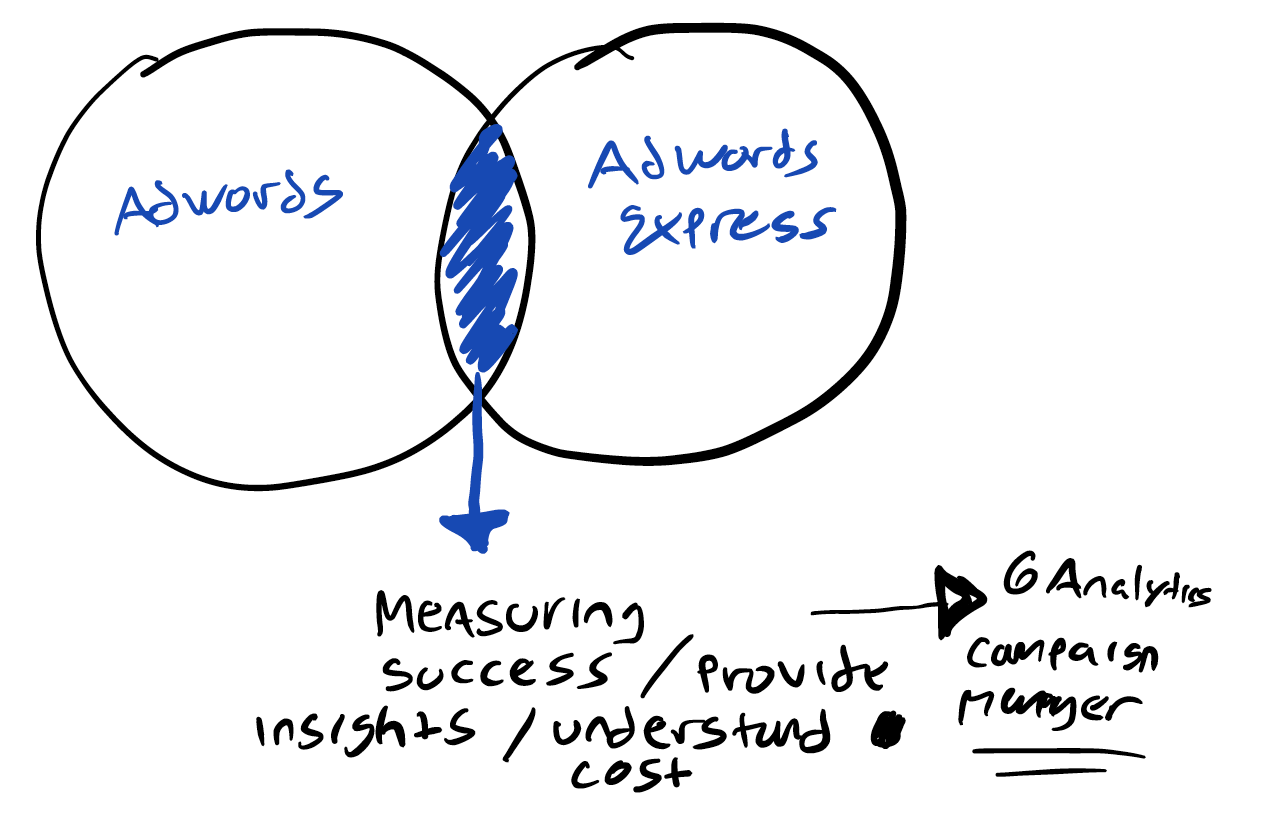 Adwords
Adwords
Express
Measuring
success / Provide
insights / understand
cost
G Analytics
Campaign
Manager